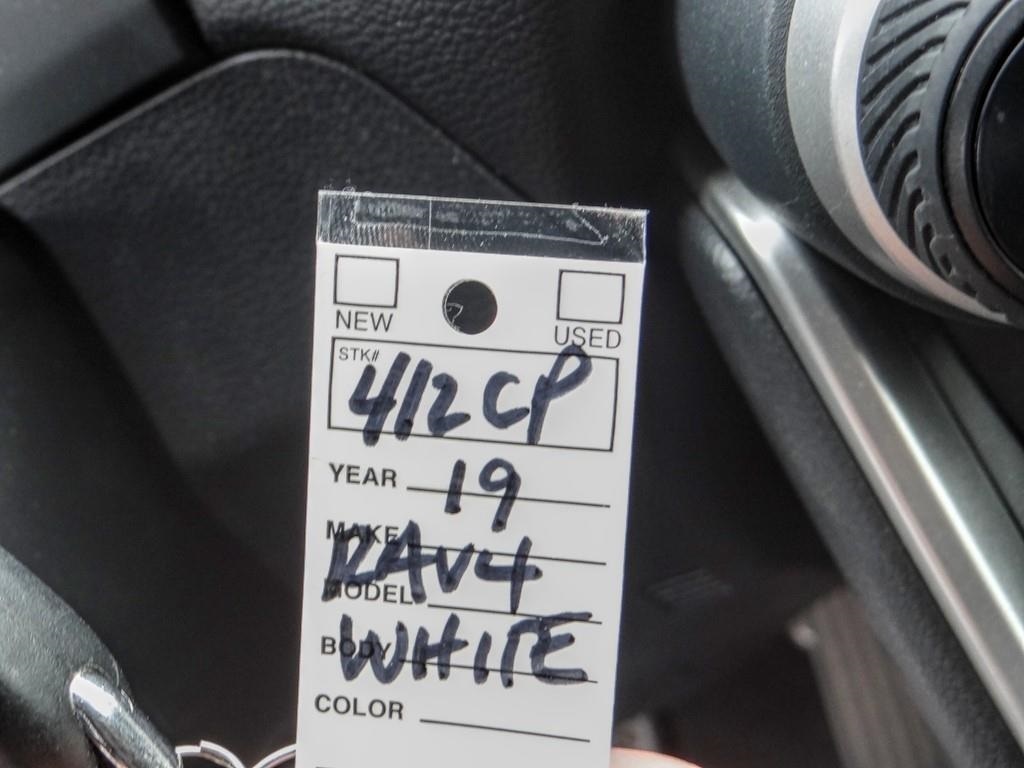 NEW USED
STK# 412CP
YEAR 19
MAKE RAV4
MODEL
BODY WHITE
COLOR